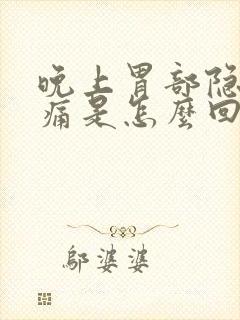 晚上胃部隐
痛是怎麼回
邬婆婆